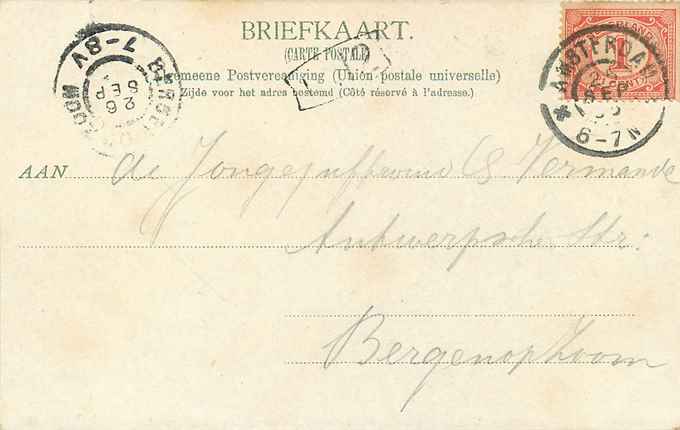 BRIEFKAART.
(CARTE POSTALE)
Algemeene Postvereeniging (Union postale universelle)
Zijde voor het adres bestemd (Côté réservé à l'adresse.)
7-8V
26
SEP
ZOOM
AMSTERDAM
25
SEP
6-7N
1
AAN de Jongejuffrouw C Vermande
Antwerpsche Str:
Bergen op Zoom